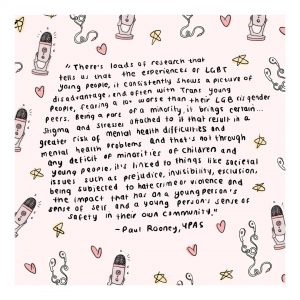 "There's loads of research that
tells us that the experiences of LGBT
young people, it consistently shows a picture of
disadvantage, and often with Trans young
people, fearing a lot worse than their LGB cisgender
peers. Being a part of a minority, it brings certain...
Stigma and stresses attached to it that result in a
greater risk of mental health difficulties and
mental health problems and that's not through
any deficit of minorities of children and
young people. it's linked to things like societal
issues such as prejudice, invisibility, exclusion,
being subjected to hate crime or violence and
the impact that has on a young person's
sense of self and a young person's sense of
safety in their own community."
- Paul Rooney, YPAS